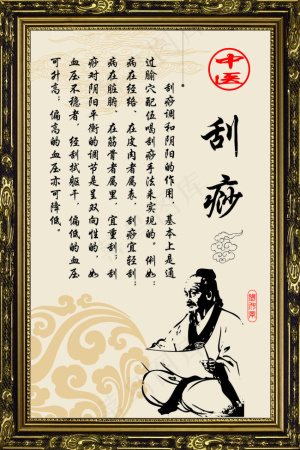 中医
刮痧
刮痧调和阴阳的作用，基本上是通
过腧穴配伍喝刮痧手法来实现的。例如：
病在经络、在皮肉者属表，刮痧宜轻刮；
病在脏腑、在筋骨者属里，宜重刮；刮
痧对阴阳平衡的调节是呈双向性的，如
血压不稳者，经刮拭躯干，偏低的血压
可升高；偏高的血压亦可降低。